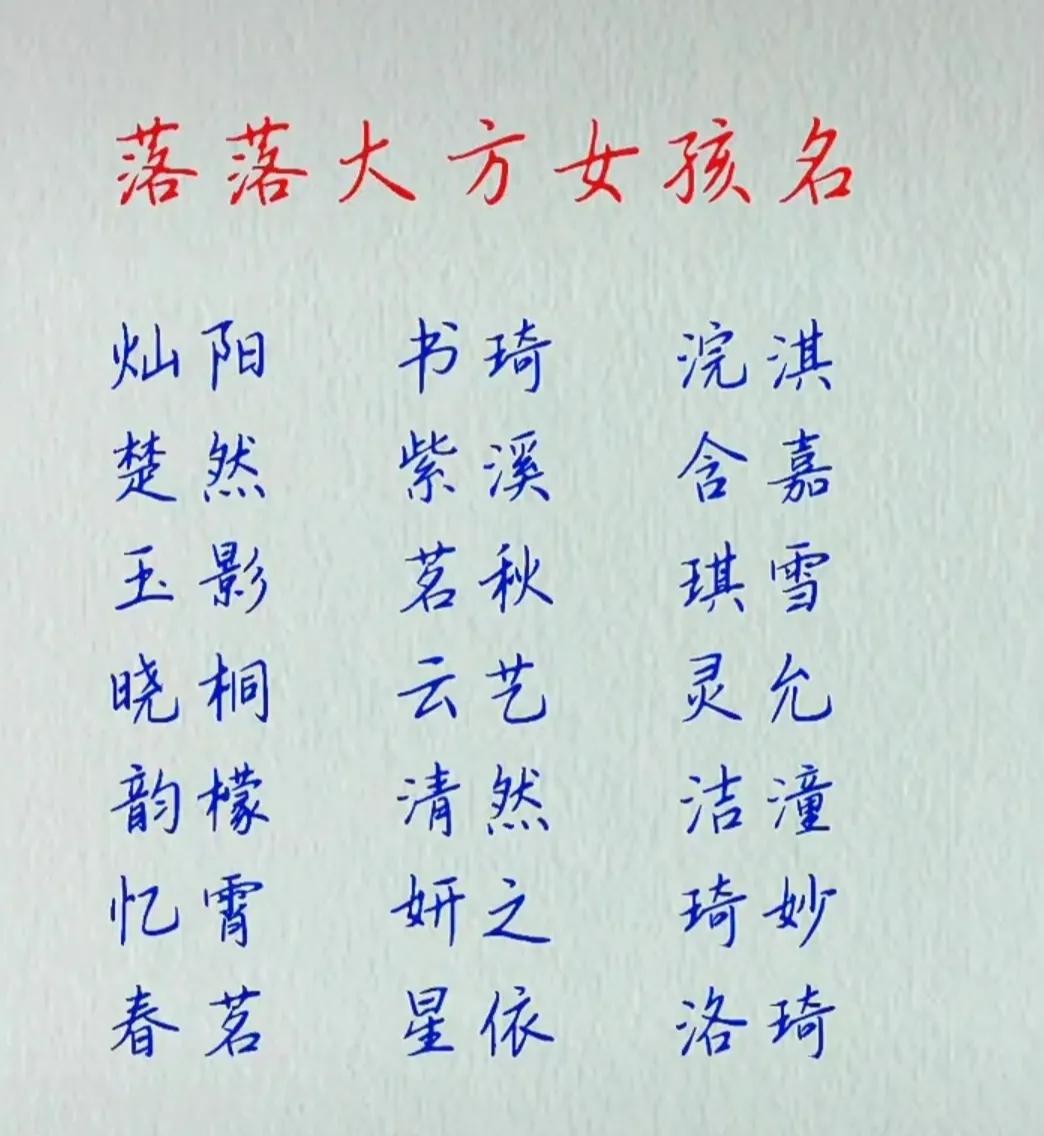 落落大方女孩名
灿阳 书琦 浣淇
楚然 紫溪 含嘉
玉影 茗秋 琪雪
晓桐 云艺 灵允
韵檬 清然 洁潼
忆霄 妍之 琦妙
春茗 星依 洛琦